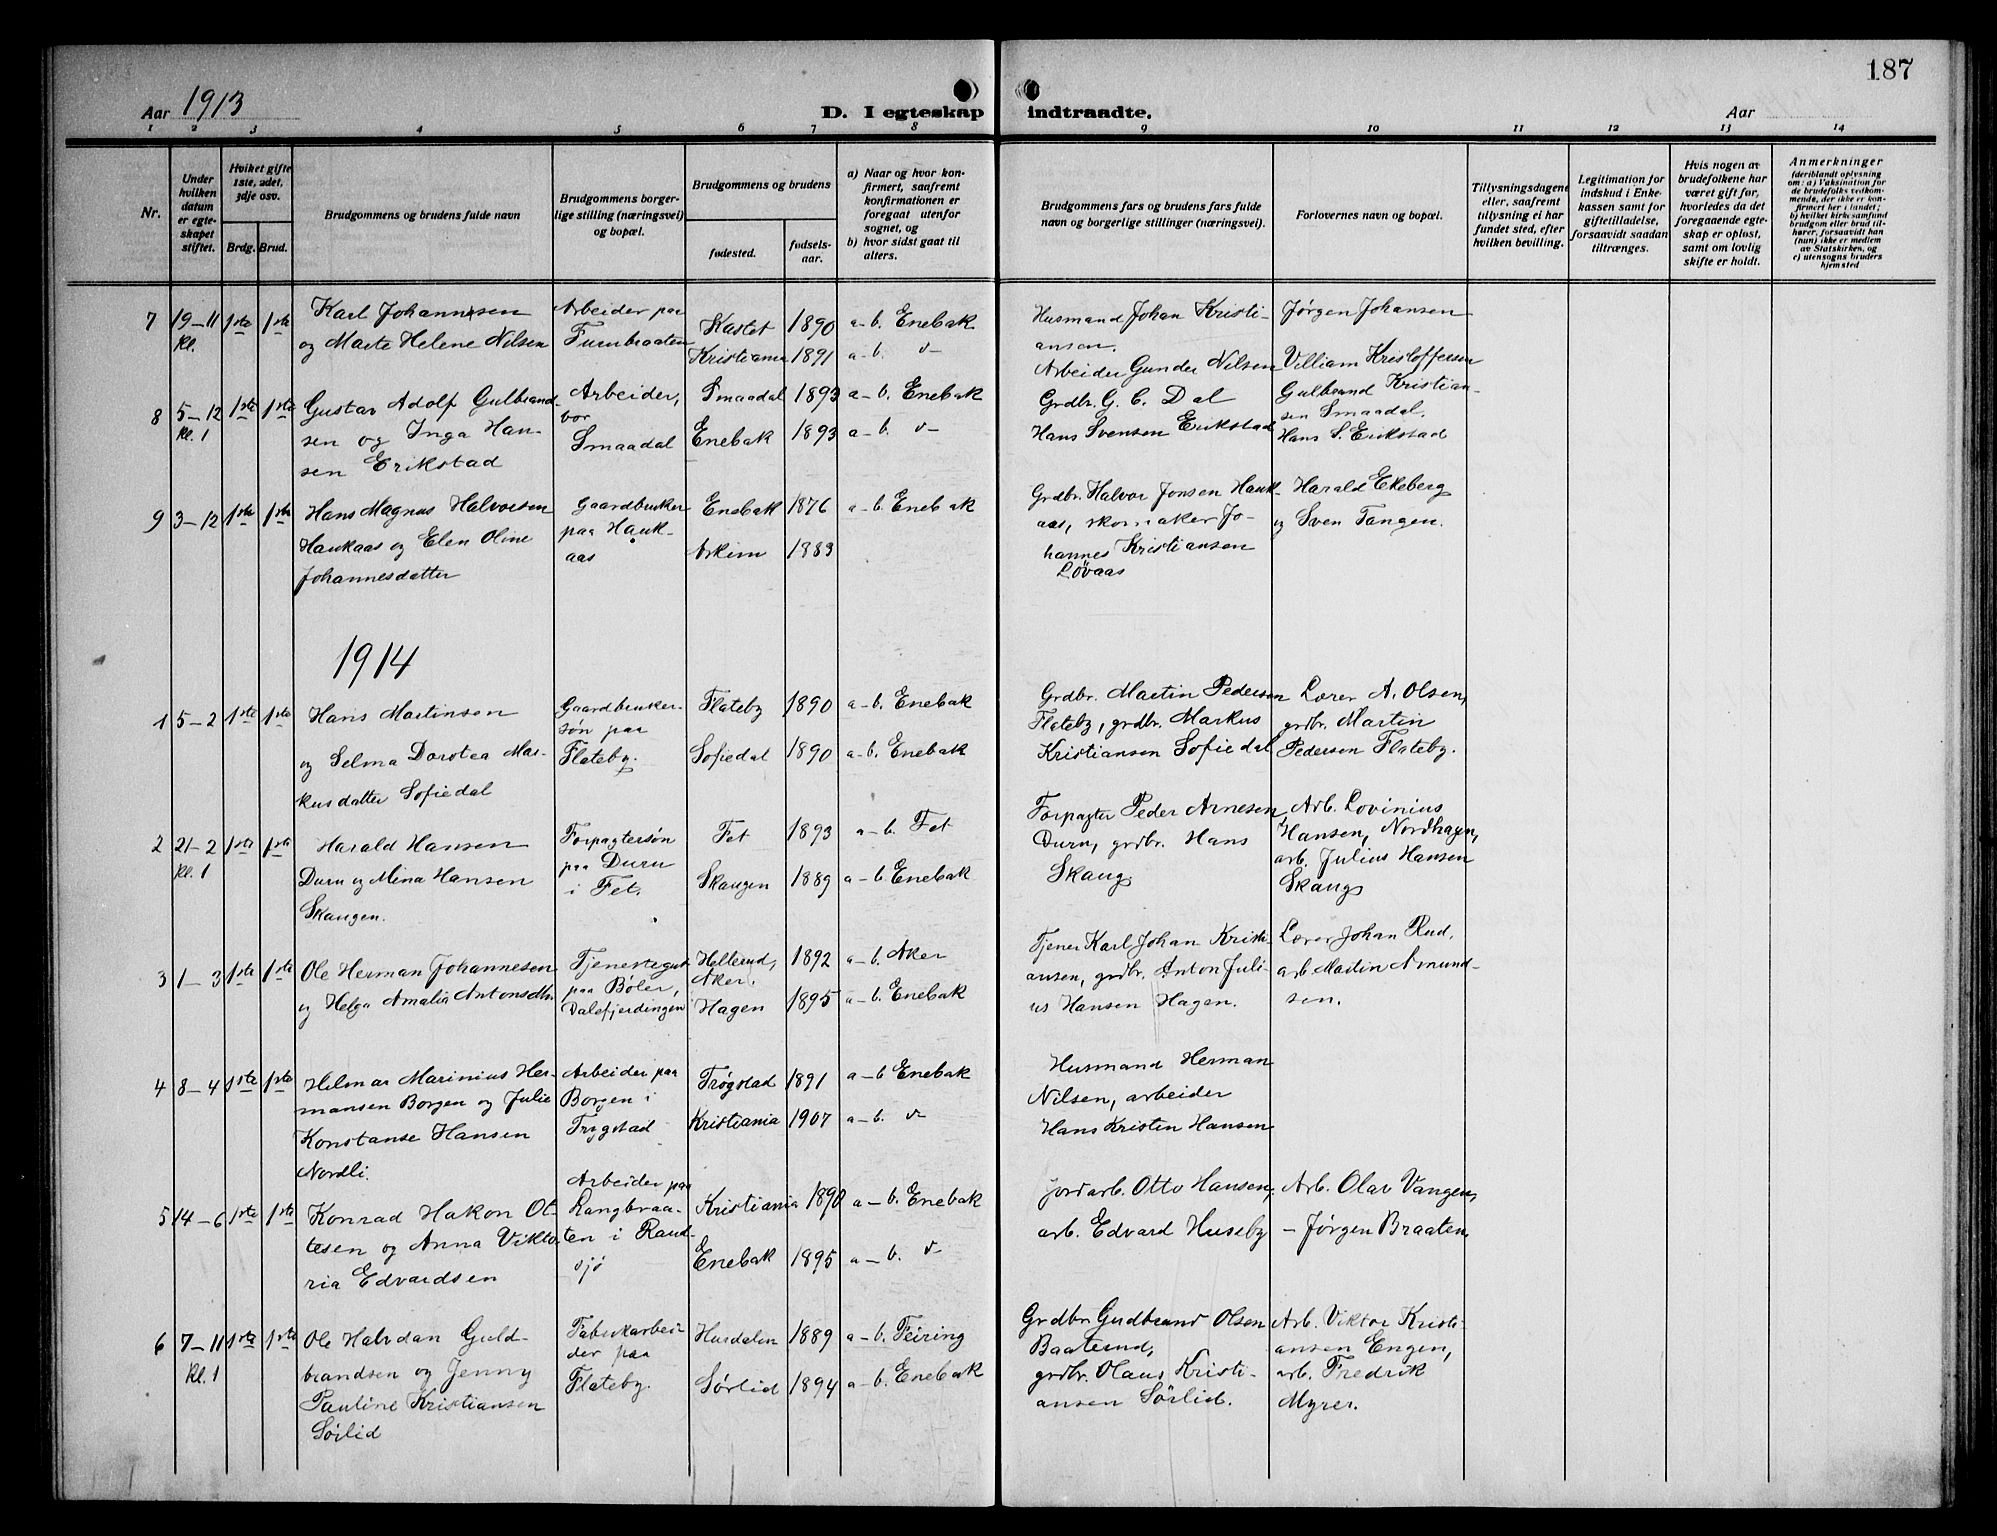 187
Aar 1913
D. I egteskap indtraadte.
Aar
1 2 3 4 5 6 7 8 9 10 11 12 13 14
Nr.
Under hvilken datum er egteskapet stiftet.
Hvilket gifte 1ste, 2det, 3dje osv.
Brdg. Brud.
Brudgommens og brudens fulde navn
Brudgommens borgerlige stilling (næringsvei) og bopæl.
Brudgommens og brudens
fødested.
fødselsaar.
a) Naar og hvor konfirmert, saafremt konfirmationen er foregaat utenfor sognet, og
b) hvor sidst gaat til alters.
Brudgommens fars og brudens fars fulde navn og borgerlige stillinger (næringsvei).
Forlovernes navn og bopæl.
Tillysningsdagene eller, saafremt tillysning ei har fundet sted, efter hvilken bevilling.
Legitimation for indskud i Enkekassen samt for giftetilladelse, forsaavidt saadan tiltrænges.
Hvis nogen av brudefolkene har været gift før, hvorledes da det foregaaende egteskap er opløst, samt om lovlig skifte er holdt.
Anmerkninger (deriblandt oplysning om: a) Vaksination for de brudefolks vedkommende, der ikke er konfirmert her i landet; b) hvilket kirkesamfund brudgom eller brud tilhører, forsaavidt han (hun) ikke er medlem av Statskirken, og c) utensogns bruders hjemsted
7 19–11 kl. 1ste 1ste
Karl Johannsen
og Marte Helene Nilsen
Arbeider paa
Furubraaten
Kastet 1890 a–b. Enebak
Kristiania 1891 a–b. v
Husmand Johan Kristi-
ansen.
Arbeider Gunder Nilsen
Jörgen Johansen
Villiam Kristoffersen
8 5–12 kl. 1 1ste 1ste
Gustav Adolf Gulbrand-
sen og Inga Han-
sen Erikstad
Arbeider,
bor
Smaadal
Smaadal 1893 a–b. Enebak
Enebak 1893 a–b. v
Grdbr. G. C. Dal
Hans Svensen Erikstad
Gulbrand Kristian-
sen Smaadal.
Hans S. Erikstad
9 3–12 1ste 1ste
Hans Magnus Halvorsen
Haukaas og Elen Oline
Johannesdatter
Gaardbruker
paa Hauk-
aas
Enebak 1876 a–b. Enebak
Askim 1883
Grdbr. Halvor Jonsen Hauk-
aas, skomaker Jo-
hannes Kristiansen
Lövaas
Harald Ekeberg
og Sven Tangen.
1914
1 5–2 1ste 1ste
Hans Martinsen
og Selma Dorotea Mar-
kusdatter Sofiedal
Gaardbruker-
søn paa
Flateby.
Flateby 1890 a–b. Enebak
Sofiedal 1890 a–b. Enebak
Grdbr. Martin Pedersen
Flateby, grdbr. Markus
Kristiansen Sofiedal
Lærer A. Olsen,
grdbr. Martin
Pedersen Flateby.
2 21–2 kl. 1 1ste 1ste
Harald Hansen
Duru og Mina Hansen
Skaugen.
Forpagtersøn
paa Duru
i Fet.
Fet 1893 a–b. Fet
Skaugen 1889 a–b. Enebak
Forpagter Peder Arnesen
Duru, grdbr. Hans
Skaug
Arb. Lovinius
Hansen, Nordhagen,
arb. Julius Hansen
Skaug
3 1–3 1ste 1ste
Ole Herman Johannesen
og Helga Amalia Antonsdtr.
Tjenestegut
paa Böler,
Dalefjerdingen
Hellerud, Aker. 1892 a–b. Aker
Hagen 1895 a–b. Enebak
Tjener Karl Johan Kristi-
ansen, grdbr. Anton Juli-
us Hansen Hagen.
Lærer Johan Rud,
arb Martin Amund-
sen.
4 8–4 1ste 1ste
Helmar Marinius Her-
mansen Borgen og Julie
Konstanse Hansen
Nordli.
Arbeider paa
Borgen i
Trøgstad
Trøgstad 1891 a–b Enebak
Kristiania 1907 a–b. v
Husmand Herman
Nilsen, arbeider
Hans Kristin Hansen
5 14–6 1ste 1ste
Konrad Hakon Ot-
tesen og Anna Vikto-
ria Edvardsen
Arbeider paa
Langbraa-
ten i Rand-
sjö
Kristiania 1890 a–b. Enebak
Enebak 1895 a–b. v
Jordarb. Otto Hansen,
arb. Edvard Huseby
Arb. Olav Vangen,
– Jørgen Braaten,
6 7–11 kl. 1 1ste 1ste
Ole Halvdan Guld-
brandsen og Jenny
Pauline Kristiansen
Sörlid
Fabrikarbei-
der paa
Flateby.
Hurdalen 1889 a–b. Feiring
Sørlid 1894 a–b. Enebak
Grdbr Gudbrand Olsen
Baaterud,
grdbr. Olaus Kristi-
ansen Sörlid.
Arb. Viktor Kristi-
ansen Engen,
arb. Fredrik
Myrer.